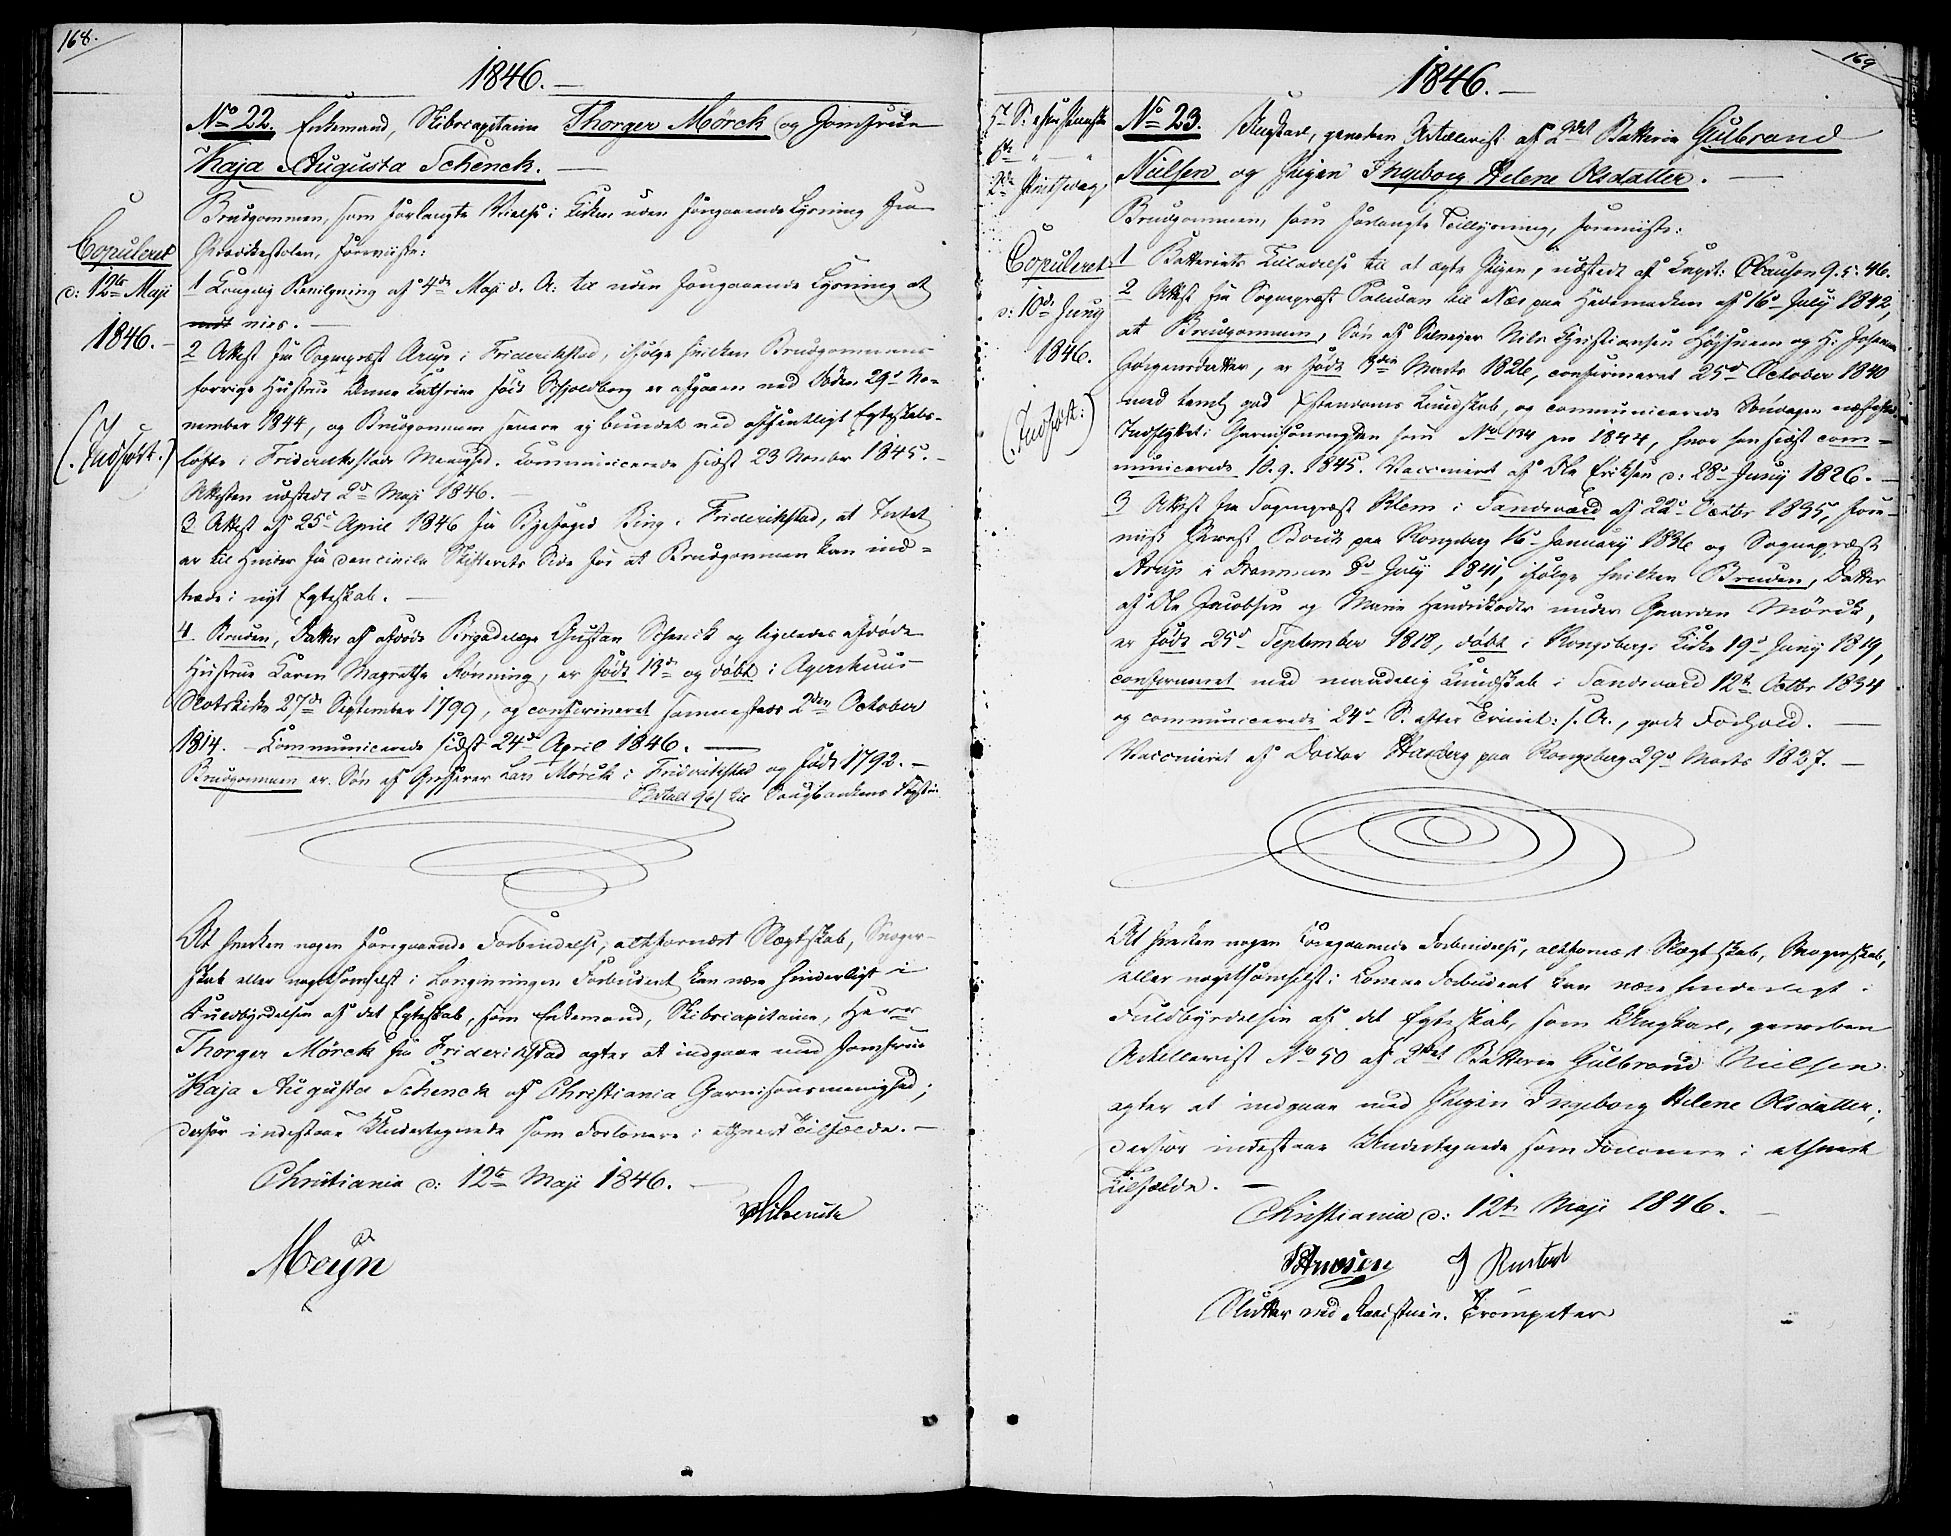 168.
1846.
Copuleret
d: 12te Maji
1846.
(Indført.)
No 22. Enkemand, Skibscapitaine Thorger Mörck og Jomfrue
Kaja Augusta Schenck.
Brudgommen, som forlangte Vielse i Kirken uden foregaaende Lysning fra
Prædikestolen, foreviiste:
1 Kongelig Bevilgning af 4de Maji d. A: til uden foregaaende Lysning at
vies.
2 Attest fra Sognepræst Arup i Friderikstad, ifølge hvilken Brudgommens
forrige Hustrue Anne Cathrine født Schjoldborg er afgaaen ved Døden 29d No-
vember 1844, og Brudgommen senere ej bundet ved offentligt Egteskabs-
løfte i Friderikstads Menighed. Communicerede sidst 23 Novbr 1845.
Attesten udstedt 2d Maji 1846.
3 Attest af 25d April 1846 fra Byefoged Bing i Friderikstad, at Intet
er til Hinder fra den civile Skifterets Side for at Brudgommen kan ind-
træde i nyt Egteskab.
4. Bruden, Datter af afdøde Brigadelæge Gustav Schenck og ligeledes afdøde
Hustrue Karen Magrethe Rönning, er født 13de og døbt i Agershuus
Slotskirke 27de September 1799, og confirmeret sammesteds 2den October
1814. Communicerede sidst 24de April 1846.
Brudgommen er Søn af Lars Mörck i Friderikstad og født 1792.
til
At hverken nogen foregaaende Forbindelse, altfornært Slægtskab, Svoger-
skab eller nogetsomhelst i Lovgivningen Forbudent kan være hinderligt i
Fuldbyrdelsen af det Egteskab, som Enkemand, Skibscapitaine, Herr
Thorger Mörck fra Friderikstad agter at indgaae med Jomfrue
Kaja Augusta Schenck af Christiania Garnisonsmenighed;
derfor indestaae Undertegnede som Forlovere i ethvert Tilfælde.
Christiania d: 12te Maji 1846.
Meijn
169
1846.
6te
2de Pintsedag
Copuleret
d: 10de Junij
1846.
(Indført:)
No 23. Ungkarl, gevorben Artillerist af 2det Batterie Gulbrand
Nielsen og Pigen Ingeborg Helene Olsdatter.
Brudgommen, som forlangte Tillysning, foreviiste:
1 Batteriets Tilladelse til at ægte Pigen, udstedt af Capt: Clauson 9.5.46.
2 Attest fra Sognepræst Paludan til Næs paa Hedemarken af 16d July 1842,
at Brudgommen, Søn af Selveier Nils Christiansen og H: Johanne
er født 3die Marts 1826, confirmeret 25d October 1840
med temlig god Christendoms Kundskab, og communicerede Søndagen næstefter.
Indflyttet i Garnisonsmghden som No 134 pro 1844, hvor han sidst com-
municerede 10.9.1845. Vaccineret af Ole Eriksen d: 28d Junij 1826.
3 Attest fra Sognepræst Blom i Sandsværd af 22d Octbr 1835, fore-
viist Provst Bonik paa Kongsberg 16d January 1836 og Sognepræst
Arup i Drammen 3d July 1841, ifølge hvilken Bruden, Datter
af Ole Jacobsen og Marie Hendriksdtr under Gaarden Mörck,
er født 25d September 1818, døbt i Kongsbergs Kirke 19d Junij 1819,
confirmeret med maadelig Kundskab i Sandsværd 12te Octbr 1834
og communicerede 24d S. efter Trinit: s. A., godt Forhold.
Vaccineret af Doctor paa Kongsberg 29d Marts 1827.
At hverken nogen foregaaende Forbindelse, altfornært Slægtskab, Svogerskab,
eller nogetsomhelst i Lovene Forbudent kan være hinderligt i
Fuldbyrdelsen af det Egteskab, som Ungkarl, gevorben
Artillerist No 50 af 2det Batterie Gulbrand Nielsen
agter at indgaae med Pigen Ingeborg Helene Olsdatter;
derfor indestaae Undertegnede som Forlovere i ethvert
Tilfælde.
Christiania d: 12te Maji 1846.
Slutter ved Raadstuen. Trompeter